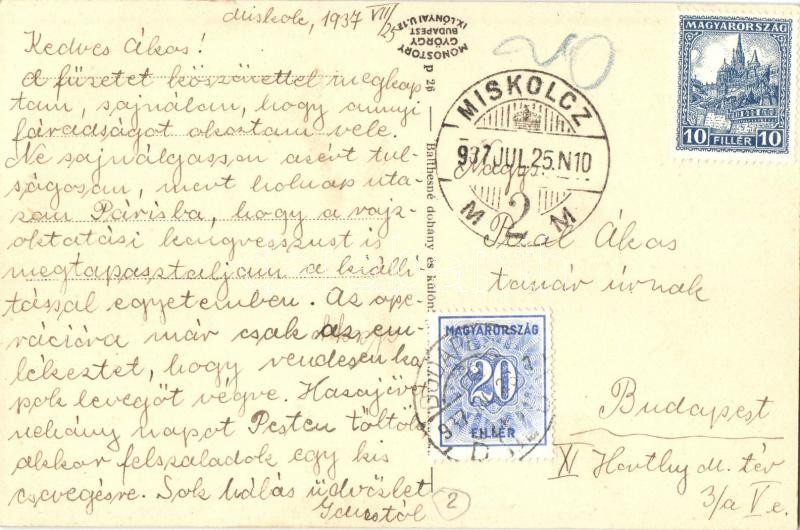 Miskolc, 1937 VII/25
Kedves Ákos!
A füzetet köszönettel megkap
tam, sajnálom, hogy annyi
fáradságot okoztam vele.
Ne sajnálgasson azért túl-
ságosan, mert holnap uta-
zom Párisba, hogy a rajz-
oktatási kongresszust is
megtapasztaljam a kiállí-
tással egyetemben. Az ope-
rációra már csak az em-
lékeztet, hogy rendesen ka-
pok levegőt végre. Hazajövet
néhány napot Pesten töltök
akkor felszaladok egy kis
csevegésre. Sok hálás üdvözlet
MONOSTORY
GYÖRGY
BUDAPEST
IX. LÓNYAI U. 17.
P 26
Balthesné dohány és különl
20
MISKOLCZ
937 JUL. 25. N10
M 2 M
MAGYARORSZÁG
10 FILLÉR 10
Nagys.
Paál Ákos
tanár úrnak
MAGYARORSZÁG
20
FILLÉR
Budapest
XI Horthy M. tér
3/a V e.
2